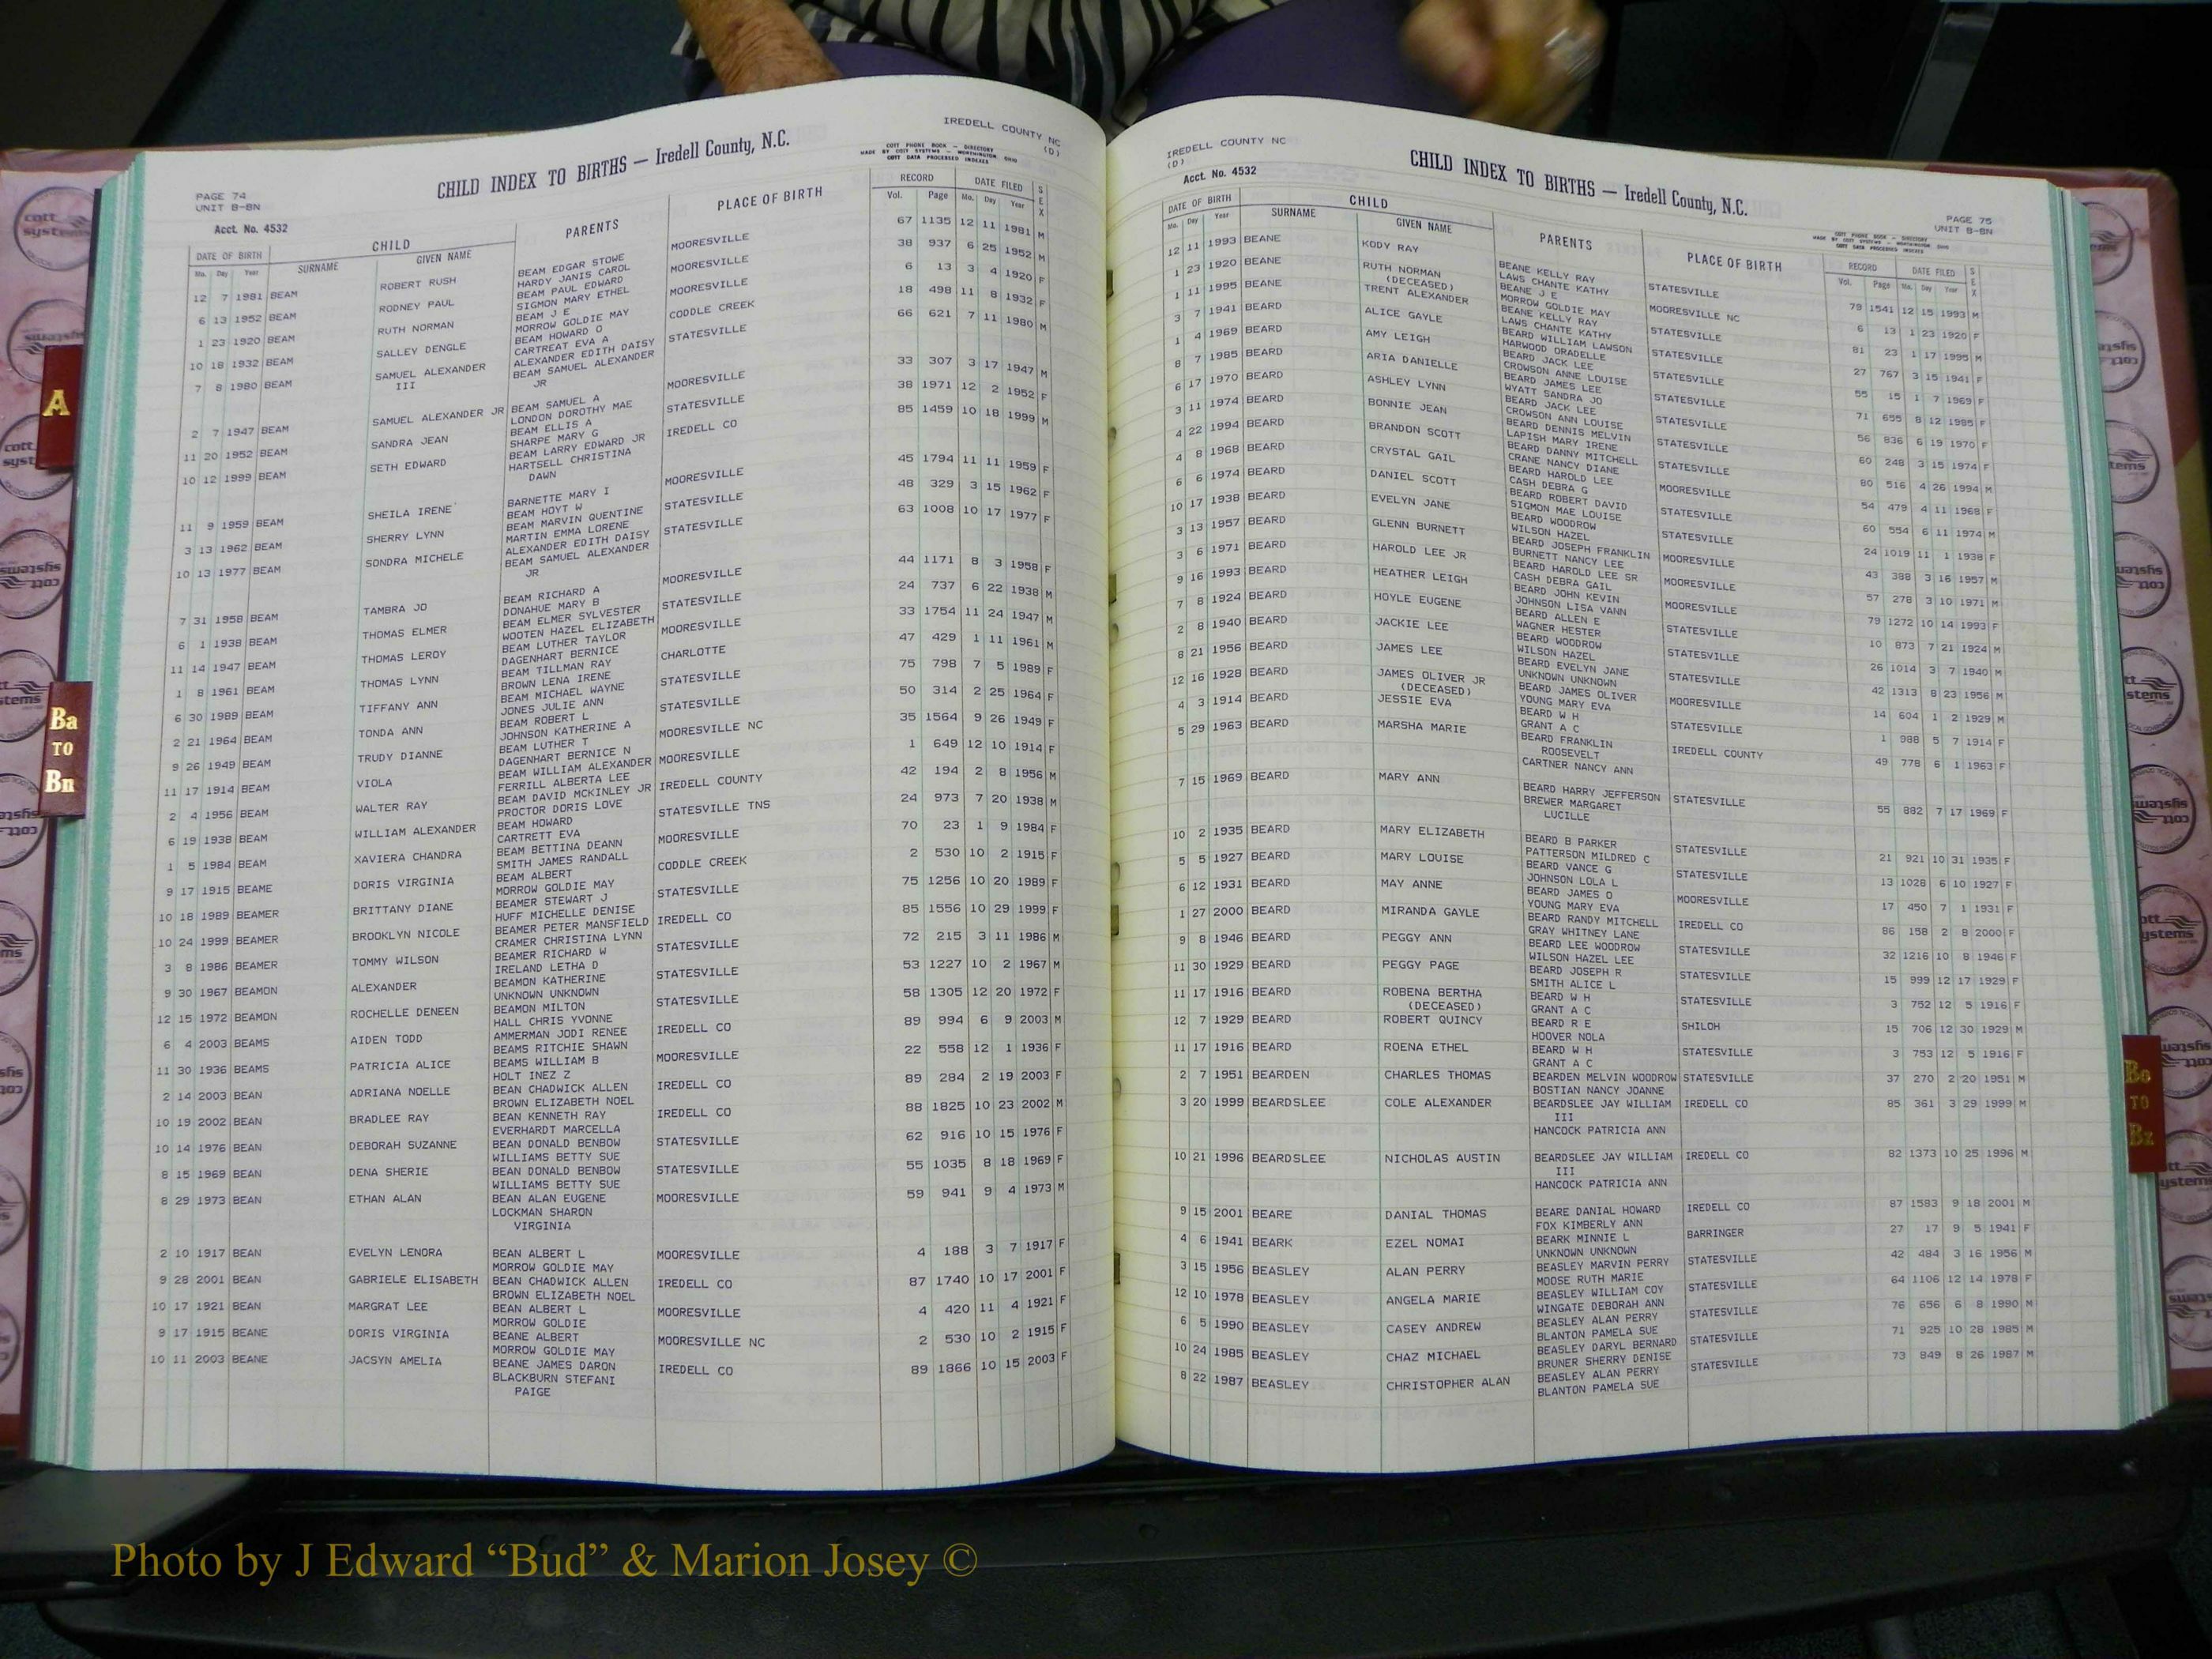 IREDELL COUNTY NC
(D)
CHILD INDEX TO BIRTHS — Iredell County, N.C.
COTT PHONE BOOK — DIRECTORY
MADE BY COTT SYSTEMS — WORTHINGTON OHIO
COTT DATA PROCESSED INDEXES
PAGE 74
UNIT B-BN
Acct. No. 4532
DATE OF BIRTH CHILD PARENTS PLACE OF BIRTH RECORD DATE FILED SEX
Mo. Day Year SURNAME GIVEN NAME Vol. Page Mo. Day Year
12 7 1981 BEAM ROBERT RUSH BEAM EDGAR STOWE MOORESVILLE 67 1135 12 11 1981 M
HARDY JANIS CAROL
6 13 1952 BEAM RODNEY PAUL BEAM PAUL EDWARD MOORESVILLE 38 937 6 25 1952 M
SIGMON MARY ETHEL
1 23 1920 BEAM RUTH NORMAN BEAM J E MOORESVILLE 6 13 3 4 1920 F
MORROW GOLDIE MAY
10 18 1932 BEAM SALLEY DENGLE BEAM HOWARD O CODDLE CREEK 18 498 11 8 1932 F
CARTREAT EVA A
7 8 1980 BEAM SAMUEL ALEXANDER ALEXANDER EDITH DAISY STATESVILLE 66 621 7 11 1980 M
III BEAM SAMUEL ALEXANDER
JR
2 7 1947 BEAM SAMUEL ALEXANDER JR BEAM SAMUEL A MOORESVILLE 33 307 3 17 1947 M
LONDON DOROTHY MAE
11 20 1952 BEAM SANDRA JEAN BEAM ELLIS A STATESVILLE 38 1971 12 2 1952 F
SHARPE MARY G
10 12 1999 BEAM SETH EDWARD BEAM LARRY EDWARD JR IREDELL CO 85 1459 10 18 1999 M
HARTSELL CHRISTINA
DAWN
11 9 1959 BEAM SHEILA IRENE BARNETTE MARY I MOORESVILLE 45 1794 11 11 1959 F
BEAM HOYT W
3 13 1962 BEAM SHERRY LYNN BEAM MARVIN QUENTINE STATESVILLE 48 329 3 15 1962 F
MARTIN EMMA LORENE
10 13 1977 BEAM SONDRA MICHELE ALEXANDER EDITH DAISY STATESVILLE 63 1008 10 17 1977 F
BEAM SAMUEL ALEXANDER
JR
7 31 1958 BEAM TAMBRA JO BEAM RICHARD A MOORESVILLE 44 1171 8 3 1958 F
DONAHUE MARY B
6 1 1938 BEAM THOMAS ELMER BEAM ELMER SYLVESTER STATESVILLE 24 737 6 22 1938 M
WOOTEN HAZEL ELIZABETH
11 14 1947 BEAM THOMAS LEROY BEAM LUTHER TAYLOR MOORESVILLE 33 1754 11 24 1947 M
DAGENHART BERNICE
1 8 1961 BEAM THOMAS LYNN BEAM TILLMAN RAY CHARLOTTE 47 429 1 11 1961 M
BROWN LENA IRENE
6 30 1989 BEAM TIFFANY ANN BEAM MICHAEL WAYNE STATESVILLE 75 798 7 5 1989 F
JONES JULIE ANN
2 21 1964 BEAM TONDA ANN BEAM ROBERT L STATESVILLE 50 314 2 25 1964 F
JOHNSON KATHERINE A
9 26 1949 BEAM TRUDY DIANNE BEAM LUTHER T MOORESVILLE NC 35 1564 9 26 1949 F
DAGENHART BERNICE N
11 17 1914 BEAM VIOLA BEAM WILLIAM ALEXANDER MOORESVILLE 1 649 12 10 1914 F
FERRILL ALBERTA LEE
2 4 1956 BEAM WALTER RAY BEAM DAVID MCKINLEY JR IREDELL COUNTY 42 194 2 8 1956 M
PROCTOR DORIS LOVE
6 19 1938 BEAM WILLIAM ALEXANDER BEAM HOWARD STATESVILLE TNS 24 973 7 20 1938 M
CARTRETT EVA
1 5 1984 BEAM XAVIERA CHANDRA BEAM BETTINA DEANN MOORESVILLE 70 23 1 9 1984 F
SMITH JAMES RANDALL
9 17 1915 BEAME DORIS VIRGINIA BEAM ALBERT CODDLE CREEK 2 530 10 2 1915 F
MORROW GOLDIE MAY
10 18 1989 BEAMER BRITTANY DIANE BEAMER STEWART J STATESVILLE 75 1256 10 20 1989 F
HUFF MICHELLE DENISE
10 24 1999 BEAMER BROOKLYN NICOLE BEAMER PETER MANSFIELD IREDELL CO 85 1556 10 29 1999 F
CRAMER CHRISTINA LYNN
3 8 1986 BEAMER TOMMY WILSON BEAMER RICHARD W STATESVILLE 72 215 3 11 1986 M
IRELAND LETHA D
9 30 1967 BEAMON ALEXANDER BEAMON KATHERINE STATESVILLE 53 1227 10 2 1967 M
UNKNOWN UNKNOWN
12 15 1972 BEAMON ROCHELLE DENEEN BEAMON MILTON STATESVILLE 58 1305 12 20 1972 F
HALL CHRIS YVONNE
6 4 2003 BEAMS AIDEN TODD AMMERMAN JODI RENEE IREDELL CO 89 994 6 9 2003 M
BEAMS RITCHIE SHAWN
11 30 1936 BEAMS PATRICIA ALICE BEAMS WILLIAM B MOORESVILLE 22 558 12 1 1936 F
HOLT INEZ Z
2 14 2003 BEAN ADRIANA NOELLE BEAN CHADWICK ALLEN IREDELL CO 89 284 2 19 2003 F
BROWN ELIZABETH NOEL
10 19 2002 BEAN BRADLEE RAY BEAN KENNETH RAY IREDELL CO 88 1825 10 23 2002 M
EVERHARDT MARCELLA
10 14 1976 BEAN DEBORAH SUZANNE BEAN DONALD BENBOW STATESVILLE 62 916 10 15 1976 F
WILLIAMS BETTY SUE
8 15 1969 BEAN DENA SHERIE BEAN DONALD BENBOW STATESVILLE 55 1035 8 18 1969 F
WILLIAMS BETTY SUE
8 29 1973 BEAN ETHAN ALAN BEAN ALAN EUGENE MOORESVILLE 59 941 9 4 1973 M
LOCKMAN SHARON
VIRGINIA
2 10 1917 BEAN EVELYN LENORA BEAN ALBERT L MOORESVILLE 4 188 3 7 1917 F
MORROW GOLDIE MAY
9 28 2001 BEAN GABRIELE ELISABETH BEAN CHADWICK ALLEN IREDELL CO 87 1740 10 17 2001 F
BROWN ELIZABETH NOEL
10 17 1921 BEAN MARGRAT LEE BEAN ALBERT L MOORESVILLE 4 420 11 4 1921 F
MORROW GOLDIE
9 17 1915 BEANE DORIS VIRGINIA BEANE ALBERT MOORESVILLE NC 2 530 10 2 1915 F
MORROW GOLDIE MAY
10 11 2003 BEANE JACSYN AMELIA BEANE JAMES DARON IREDELL CO 89 1866 10 15 2003 F
BLACKBURN STEFANI
PAIGE
IREDELL COUNTY NC
(D)
Acct. No. 4532
CHILD INDEX TO BIRTHS — Iredell County, N.C.
PAGE 75
UNIT B-BN
COTT PHONE BOOK — DIRECTORY
MADE BY COTT SYSTEMS — WORTHINGTON OHIO
COTT DATA PROCESSED INDEXES
DATE OF BIRTH CHILD PARENTS PLACE OF BIRTH RECORD DATE FILED SEX
Mo. Day Year SURNAME GIVEN NAME Vol. Page Mo. Day Year
12 11 1993 BEANE KODY RAY BEANE KELLY RAY STATESVILLE 79 1541 12 15 1993 M
LAWS CHANTE KATHY
1 23 1920 BEANE RUTH NORMAN BEANE J E MOORESVILLE NC 6 13 1 23 1920 F
(DECEASED) MORROW GOLDIE MAY
1 11 1995 BEANE TRENT ALEXANDER BEANE KELLY RAY STATESVILLE 81 23 1 17 1995 M
LAWS CHANTE KATHY
3 7 1941 BEARD ALICE GAYLE BEARD WILLIAM LAWSON STATESVILLE 27 767 3 15 1941 F
HARWOOD ORADELLE
1 4 1969 BEARD AMY LEIGH BEARD JACK LEE STATESVILLE 55 15 1 7 1969 F
CROWSON ANNE LOUISE
8 7 1985 BEARD ARIA DANIELLE BEARD JAMES LEE STATESVILLE 71 655 8 12 1985 F
WYATT SANDRA JO
6 17 1970 BEARD ASHLEY LYNN BEARD JACK LEE STATESVILLE 56 836 6 19 1970 F
CROWSON ANN LOUISE
3 11 1974 BEARD BONNIE JEAN BEARD DENNIS MELVIN STATESVILLE 60 248 3 15 1974 F
LAPISH MARY IRENE
4 22 1994 BEARD BRANDON SCOTT BEARD DANNY MITCHELL MOORESVILLE 80 516 4 26 1994 M
CRANE NANCY DIANE
4 8 1968 BEARD CRYSTAL GAIL BEARD HAROLD LEE STATESVILLE 54 479 4 11 1968 F
CASH DEBRA G
6 6 1974 BEARD DANIEL SCOTT BEARD ROBERT DAVID STATESVILLE 60 554 6 11 1974 M
SIGMON MAE LOUISE
10 17 1938 BEARD EVELYN JANE BEARD WOODROW MOORESVILLE 24 1019 11 1 1938 F
WILSON HAZEL
3 13 1957 BEARD GLENN BURNETT BEARD JOSEPH FRANKLIN MOORESVILLE 43 388 3 16 1957 M
BURNETT NANCY LEE
3 6 1971 BEARD HAROLD LEE JR BEARD HAROLD LEE SR MOORESVILLE 57 278 3 10 1971 M
CASH DEBRA GAIL
9 16 1993 BEARD HEATHER LEIGH BEARD JOHN KEVIN STATESVILLE 79 1272 10 14 1993 F
JOHNSON LISA VANN
7 8 1924 BEARD HOYLE EUGENE BEARD ALLEN E STATESVILLE 10 873 7 21 1924 M
WAGNER HESTER
2 8 1940 BEARD JACKIE LEE BEARD WOODROW STATESVILLE 26 1014 3 7 1940 M
WILSON HAZEL
8 21 1956 BEARD JAMES LEE BEARD EVELYN JANE MOORESVILLE 42 1313 8 23 1956 M
UNKNOWN UNKNOWN
12 16 1928 BEARD JAMES OLIVER JR BEARD JAMES OLIVER STATESVILLE 14 604 1 2 1929 M
(DECEASED) YOUNG MARY EVA
4 3 1914 BEARD JESSIE EVA BEARD W H IREDELL COUNTY 1 988 5 7 1914 F
GRANT A C
5 29 1963 BEARD MARSHA MARIE BEARD FRANKLIN 49 778 6 1 1963 F
ROOSEVELT
CARTNER NANCY ANN
7 15 1969 BEARD MARY ANN BEARD HARRY JEFFERSON STATESVILLE 55 882 7 17 1969 F
BREWER MARGARET
LUCILLE
10 2 1935 BEARD MARY ELIZABETH BEARD B PARKER STATESVILLE 21 921 10 31 1935 F
PATTERSON MILDRED C
5 5 1927 BEARD MARY LOUISE BEARD VANCE G STATESVILLE 13 1028 6 10 1927 F
JOHNSON LOLA L
6 12 1931 BEARD MAY ANNE BEARD JAMES O MOORESVILLE 17 450 7 1 1931 F
YOUNG MARY EVA
1 27 2000 BEARD MIRANDA GAYLE BEARD RANDY MITCHELL IREDELL CO 86 158 2 8 2000 F
GRAY WHITNEY LANE
9 8 1946 BEARD PEGGY ANN BEARD LEE WOODROW STATESVILLE 32 1216 10 8 1946 F
WILSON HAZEL LEE
11 30 1929 BEARD PEGGY PAGE BEARD JOSEPH R STATESVILLE 15 999 12 17 1929 F
SMITH ALICE L
11 17 1916 BEARD ROBENA BERTHA BEARD W H STATESVILLE 3 752 12 5 1916 F
(DECEASED) GRANT A C
12 7 1929 BEARD ROBERT QUINCY BEARD R E SHILOH 15 706 12 30 1929 M
HOOVER NOLA
11 17 1916 BEARD ROENA ETHEL BEARD W H STATESVILLE 3 753 12 5 1916 F
GRANT A C
2 7 1951 BEARDEN CHARLES THOMAS BEARDEN MELVIN WOODROW STATESVILLE 37 270 2 20 1951 M
BOSTIAN NANCY JOANNE
3 20 1999 BEARDSLEE COLE ALEXANDER BEARDSLEE JAY WILLIAM IREDELL CO 85 361 3 29 1999 M
III
HANCOCK PATRICIA ANN
10 21 1996 BEARDSLEE NICHOLAS AUSTIN BEARDSLEE JAY WILLIAM IREDELL CO 82 1373 10 25 1996 M
III
HANCOCK PATRICIA ANN
9 15 2001 BEARE DANIAL THOMAS BEARE DANIAL HOWARD IREDELL CO 87 1583 9 18 2001 M
FOX KIMBERLY ANN
4 6 1941 BEARK EZEL NOMAI BEARK MINNIE L BARRINGER 27 17 9 5 1941 F
UNKNOWN UNKNOWN
3 15 1956 BEASLEY ALAN PERRY BEASLEY MARVIN PERRY STATESVILLE 42 484 3 16 1956 M
MOOSE RUTH MARIE
12 10 1978 BEASLEY ANGELA MARIE BEASLEY WILLIAM COY STATESVILLE 64 1106 12 14 1978 F
WINGATE DEBORAH ANN
6 5 1990 BEASLEY CASEY ANDREW BEASLEY ALAN PERRY STATESVILLE 76 656 6 8 1990 M
BLANTON PAMELA SUE
10 24 1985 BEASLEY CHAZ MICHAEL BEASLEY DARYL BERNARD STATESVILLE 71 925 10 28 1985 M
BRUNER SHERRY DENISE
8 22 1987 BEASLEY CHRISTOPHER ALAN BEASLEY ALAN PERRY STATESVILLE 73 849 8 26 1987 M
BLANTON PAMELA SUE
A
Ba
TO
Bn
Bo
TO
Bz
cott
systems
Photo by J Edward “Bud” & Marion Josey ©